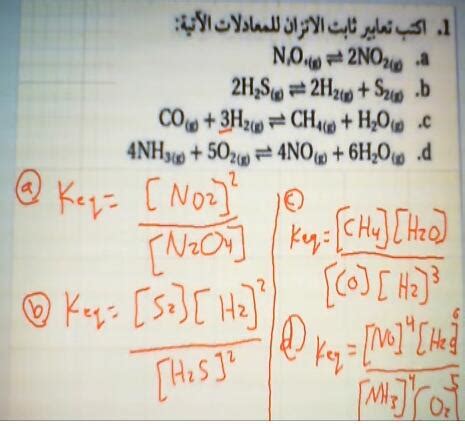 1. اكتب تعابير ثابت الاتزان للمعادلات الآتية:
a. N₂O₄(g) ⇌ 2NO₂(g)
b. 2H₂S(g) ⇌ 2H₂(g) + S₂(g)
c. CO(g) + 3H₂(g) ⇌ CH₄(g) + H₂O(g)
d. 4NH₃(g) + 5O₂(g) ⇌ 4NO(g) + 6H₂O(g)
ⓐ Keq = [NO2]²
[N2O4]
ⓑ Keq = [S2][H2]²
[H2S]²
ⓒ
Keq = [CH4][H2O]
[CO][H2]³
ⓓ Keq = [NO]⁴[H2O]⁶
[NH3]⁴[O2]⁵